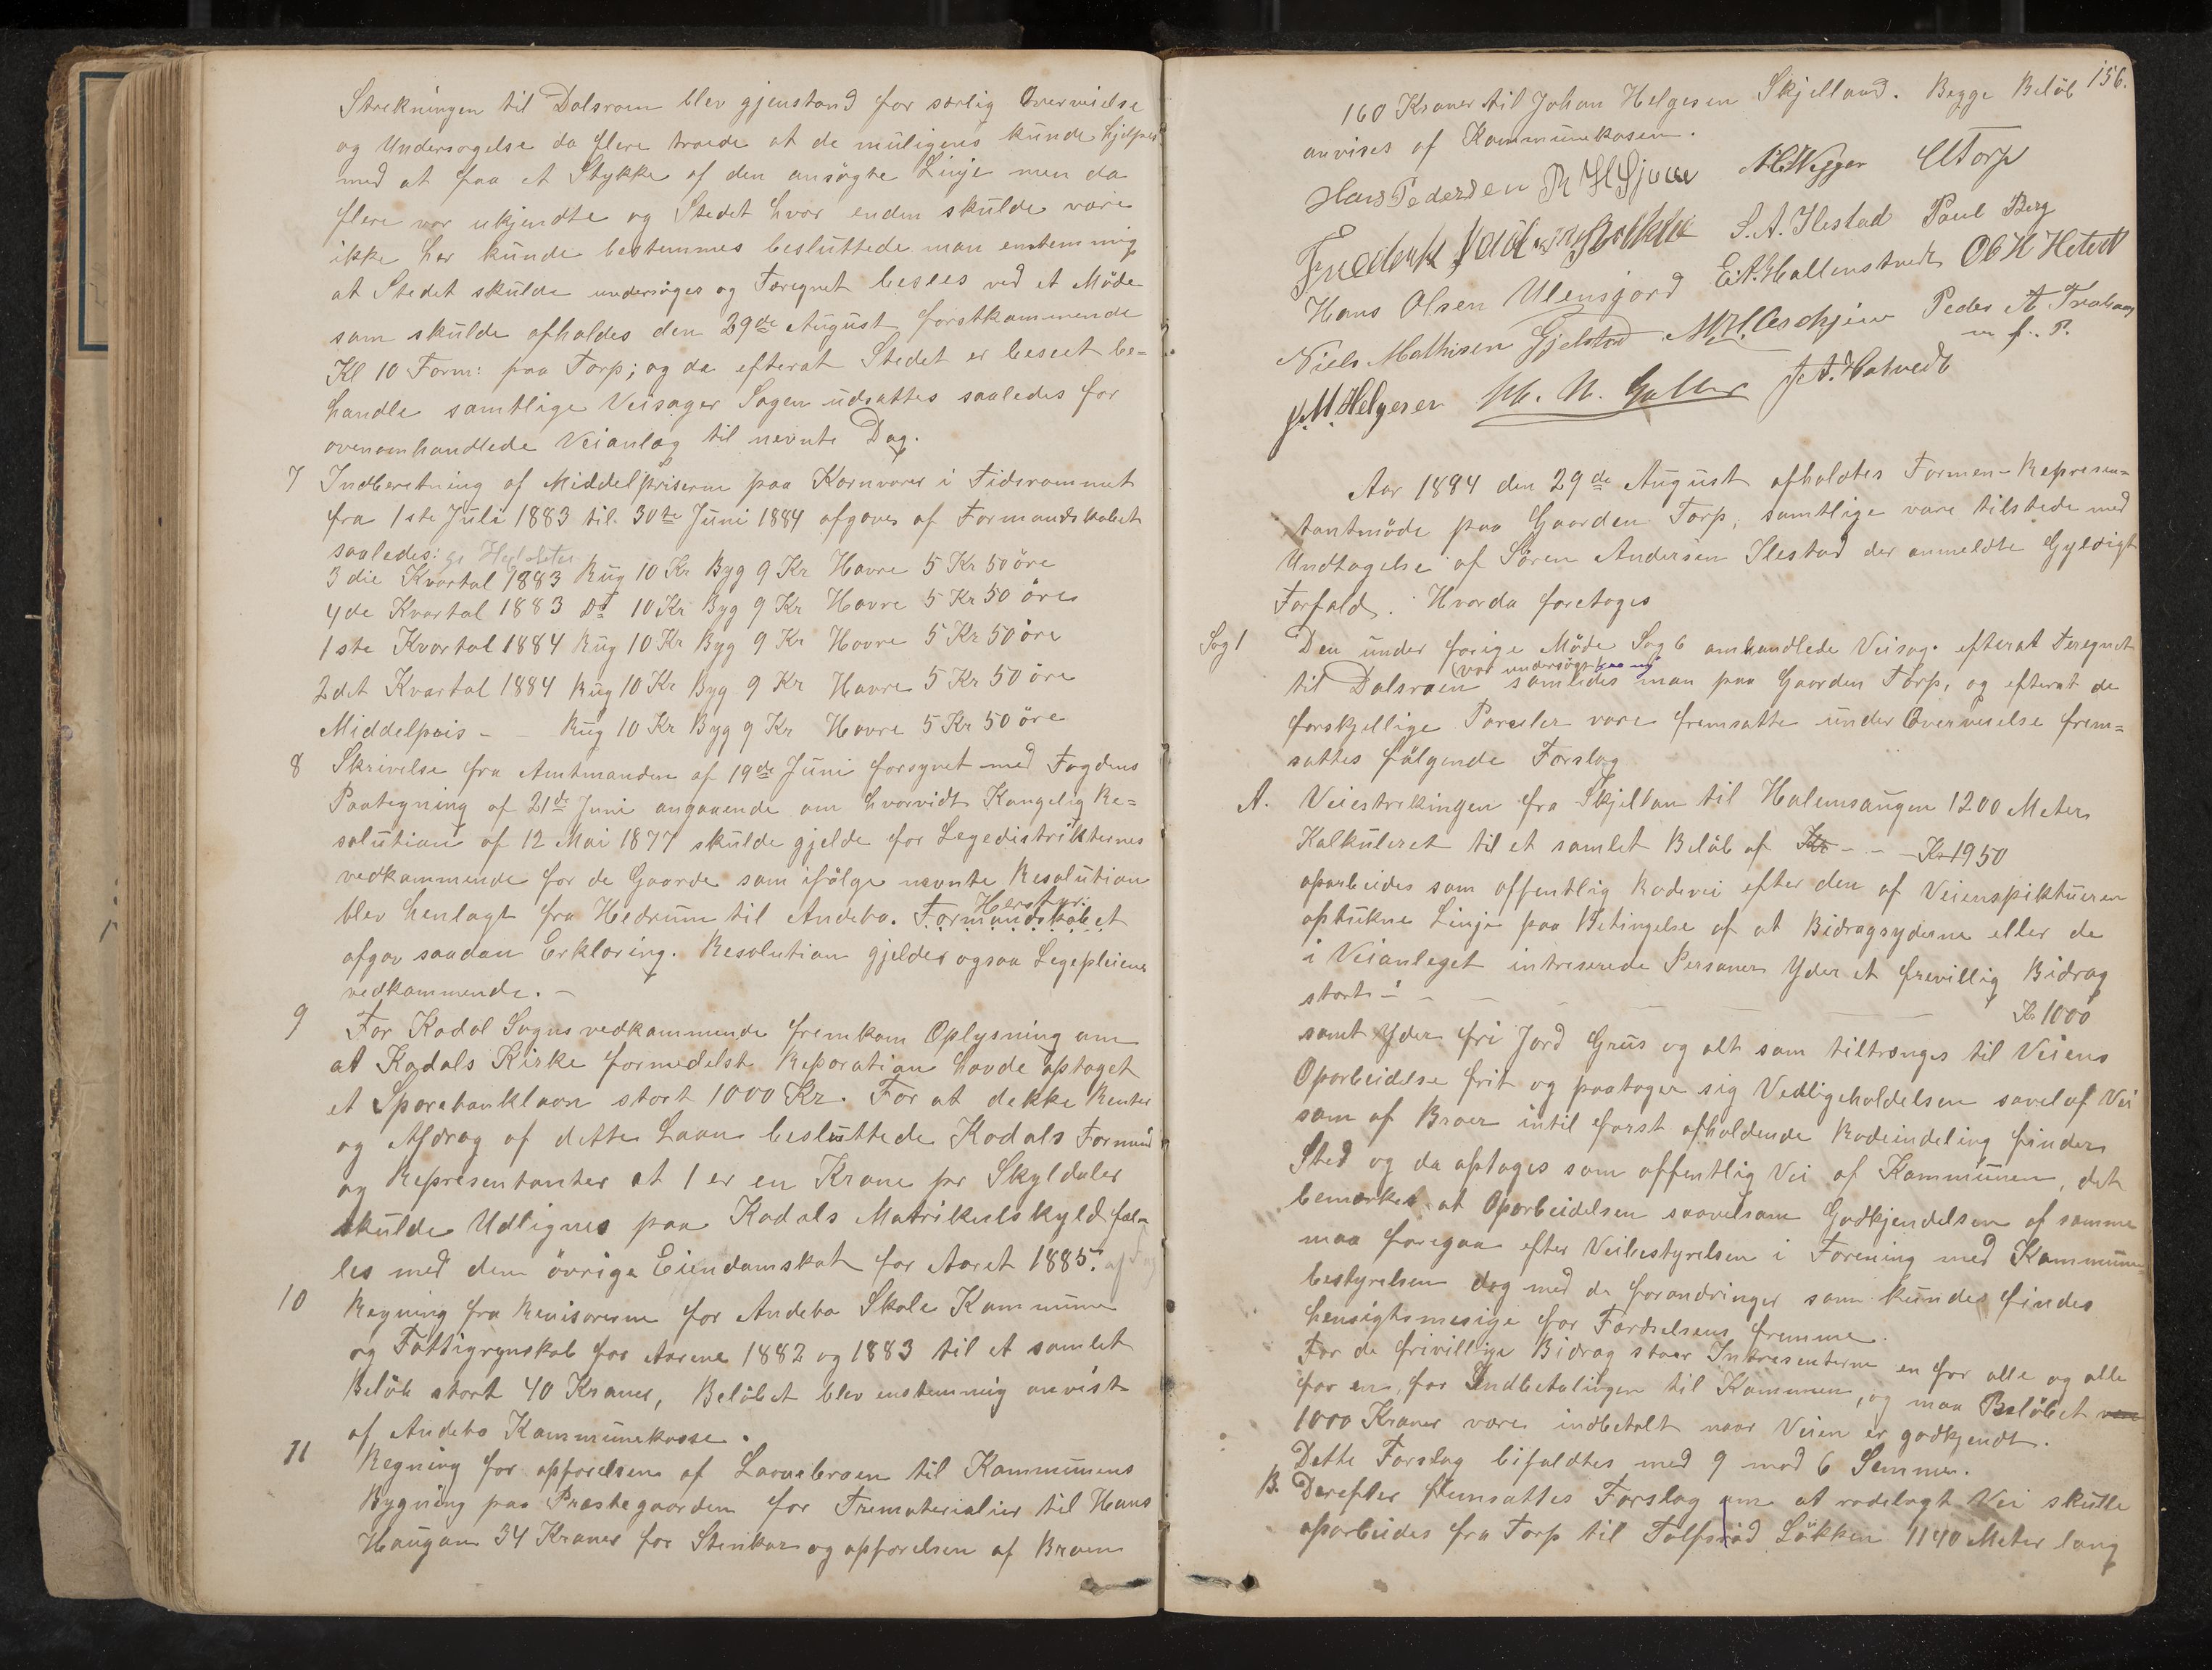 Strekningen til Dalsroen blev gjenstand for særlig Overveielse
og Undersøgelse da flere troede at de muligens kunde hjelpes
med at faa et Stykke af den ansøgte Linje men da
flere var ukjendte og Stedet hvor enden skulde være
ikke her kunde bestemmes besluttede man enstemmig
at Stedet skulde undersøges og Terrenet besees ved et Møde
som skulde afholdes den 29de August førstkommende
Kl 10 Form: paa Torp; og da efterat Stedet er beseet be=
handle samtlige Veisager Sagen udsattes saaledes for
ovenomhandlede Veianlæg til nevnte Dag.
7 Indberetning af Middelpriserne paa Kornvarer i Tidsrommet
fra 1ste Juli 1883 til 30te Juni 1884 afgaves af Formandskabet
saaledes: 
3die Kvartal 1883 Rug 10 Kr Byg 9 Kr Havre 5 Kr 50 øre
4de Kvartal 1883 Dt 10 Kr Byg 9 Kr Havre 5 Kr 50 øre
1ste Kvartal 1884 Rug 10 Kr Byg 9 Kr Havre 5 Kr 50 øre
2det Kvartal 1884 Rug 10 Kr Byg 9 Kr Havre 5 Kr 50 øre
Middelpris - - Rug 10 Kr Byg 9 Kr Havre 5 Kr 50 øre
8 Skrivelse fra Amtmanden af 19de Juni forsynet med Fogdens
Paategning af 21de Juni angaaende om hvorvidt Kongelig Re=
solution af 12 Mai 1877 skulde gjelde for Legedistrikternes
vedkommende for de Gaarde som ifølge nevnte Resolution
blev henlagt fra Hedrum til Andebo. Formandskabet
Herestyr.
afgav saadan Erklæring. Resolution gjelder ogsaa Legepleiens
vedkommende. -
9 For Kodal Sogns vedkommende fremkom Oplysning om
at Kodals Kirke formedelst Reparation havde optaget
et Sparebanklaan stort 1000 Kr. For at dekke Renter
og Afdrag af dette Laan besluttede Kodals Formænd
og Representanter at 1 er en Krone pr Skyldaler
skulde Udlignes paa Kodals Matrikulskyld fæl=
les med den øvrige Eiendomskat for Aaret 1885.
10 Regning fra Revisorerne for Andebo Skole Kommune
og Fattigregnskab for Aarene 1882 og 1883 til et samlet
Beløb stort 40 Kroner, Beløbet blev enstemmig anvist
af Andebo Kommunekasse.
11 Regning for opførelsen af Laavebroen til Kommunens
Bygning paa Prestegaarden for Trematerialier til Hans
Haugan 34 Kroner for Stenkar og opførelsen af Broen
156.
160 Kroner til Johan Helgesen Skjelland. Begge Beløb
anvises af Kommunekasen.
Hans Pedersen
Torp
Frederik S. A. Ilestad Paul Berg
Hans Olsen Ulensjord E. A. Hallenstvedt
Niels Mathisen Gjelstad Peder A
m f. P.
J. M. Helgesen
Aar 1884 den 29de August afholdtes Formen-Represen=
tantmøde paa Gaarden Torp, samtlige vare tilstede med
Undtagelse af Søren Andersen Ilestad der anmeldte Gyldigt
Forfald. Hvorda foretoges
Sag 1 Den under forige Møde Sag 6 omhandlede Veisag. efterat Teregnet
var undersøgt
til Dalsroen samledes man paa Gaarden Torp, og efterat de
forskjellige Parseler vare fremsatte under Overveielse frem=
sattes følgende Forslag
A. Veiestrekingen fra Skjellan til Holemsaugen 1200 Meter
Kalkuleret til et samlet Beløb af Kr - - - Kr 1950
oparbeides som offentlig Rodevei efter den af Veienspiktueren
opstukne Linje paa Betingelse af at Bidragsyderne eller de
i Veianleget intreserede Personer Yder et frevillig Bidrag
stort - - - - - - - Kr 1000
samt Yder fri Jord Grus og alt som tiltrenges til Veiens
Oparbeidelse frit og paatager sig Vedligeholdelsen savel af Vei
som af Broer intil først afholdende Rodeindeling finder
Sted og da optages som offentlig Vei af Kommunen, det
bemerkes at Oparbeidelsen saavelsom Godkjendelsen af samme
maa foregaa efter Veibestyrelsen i Forening med Kommune=
bestyrelsen dog med de forandringer som kunde findes
hensigtsmesige for Ferdselsens fremme.
For de frivillige Bidrag staar Intresenterne en for alle og alle
for en, for Indbetalingen til Kommunen, og maa Beløbet
1000 Kroner være indbetalt naar Veien er godkjendt.
Dette Forslag bifaldtes med 9 mod 6 Semmer.
B. Derefter fremsattes Forslag om at rodelagt Vei skulle
oparbeides fra Torp til Tolfsrød Løkken 1140 Meter lang